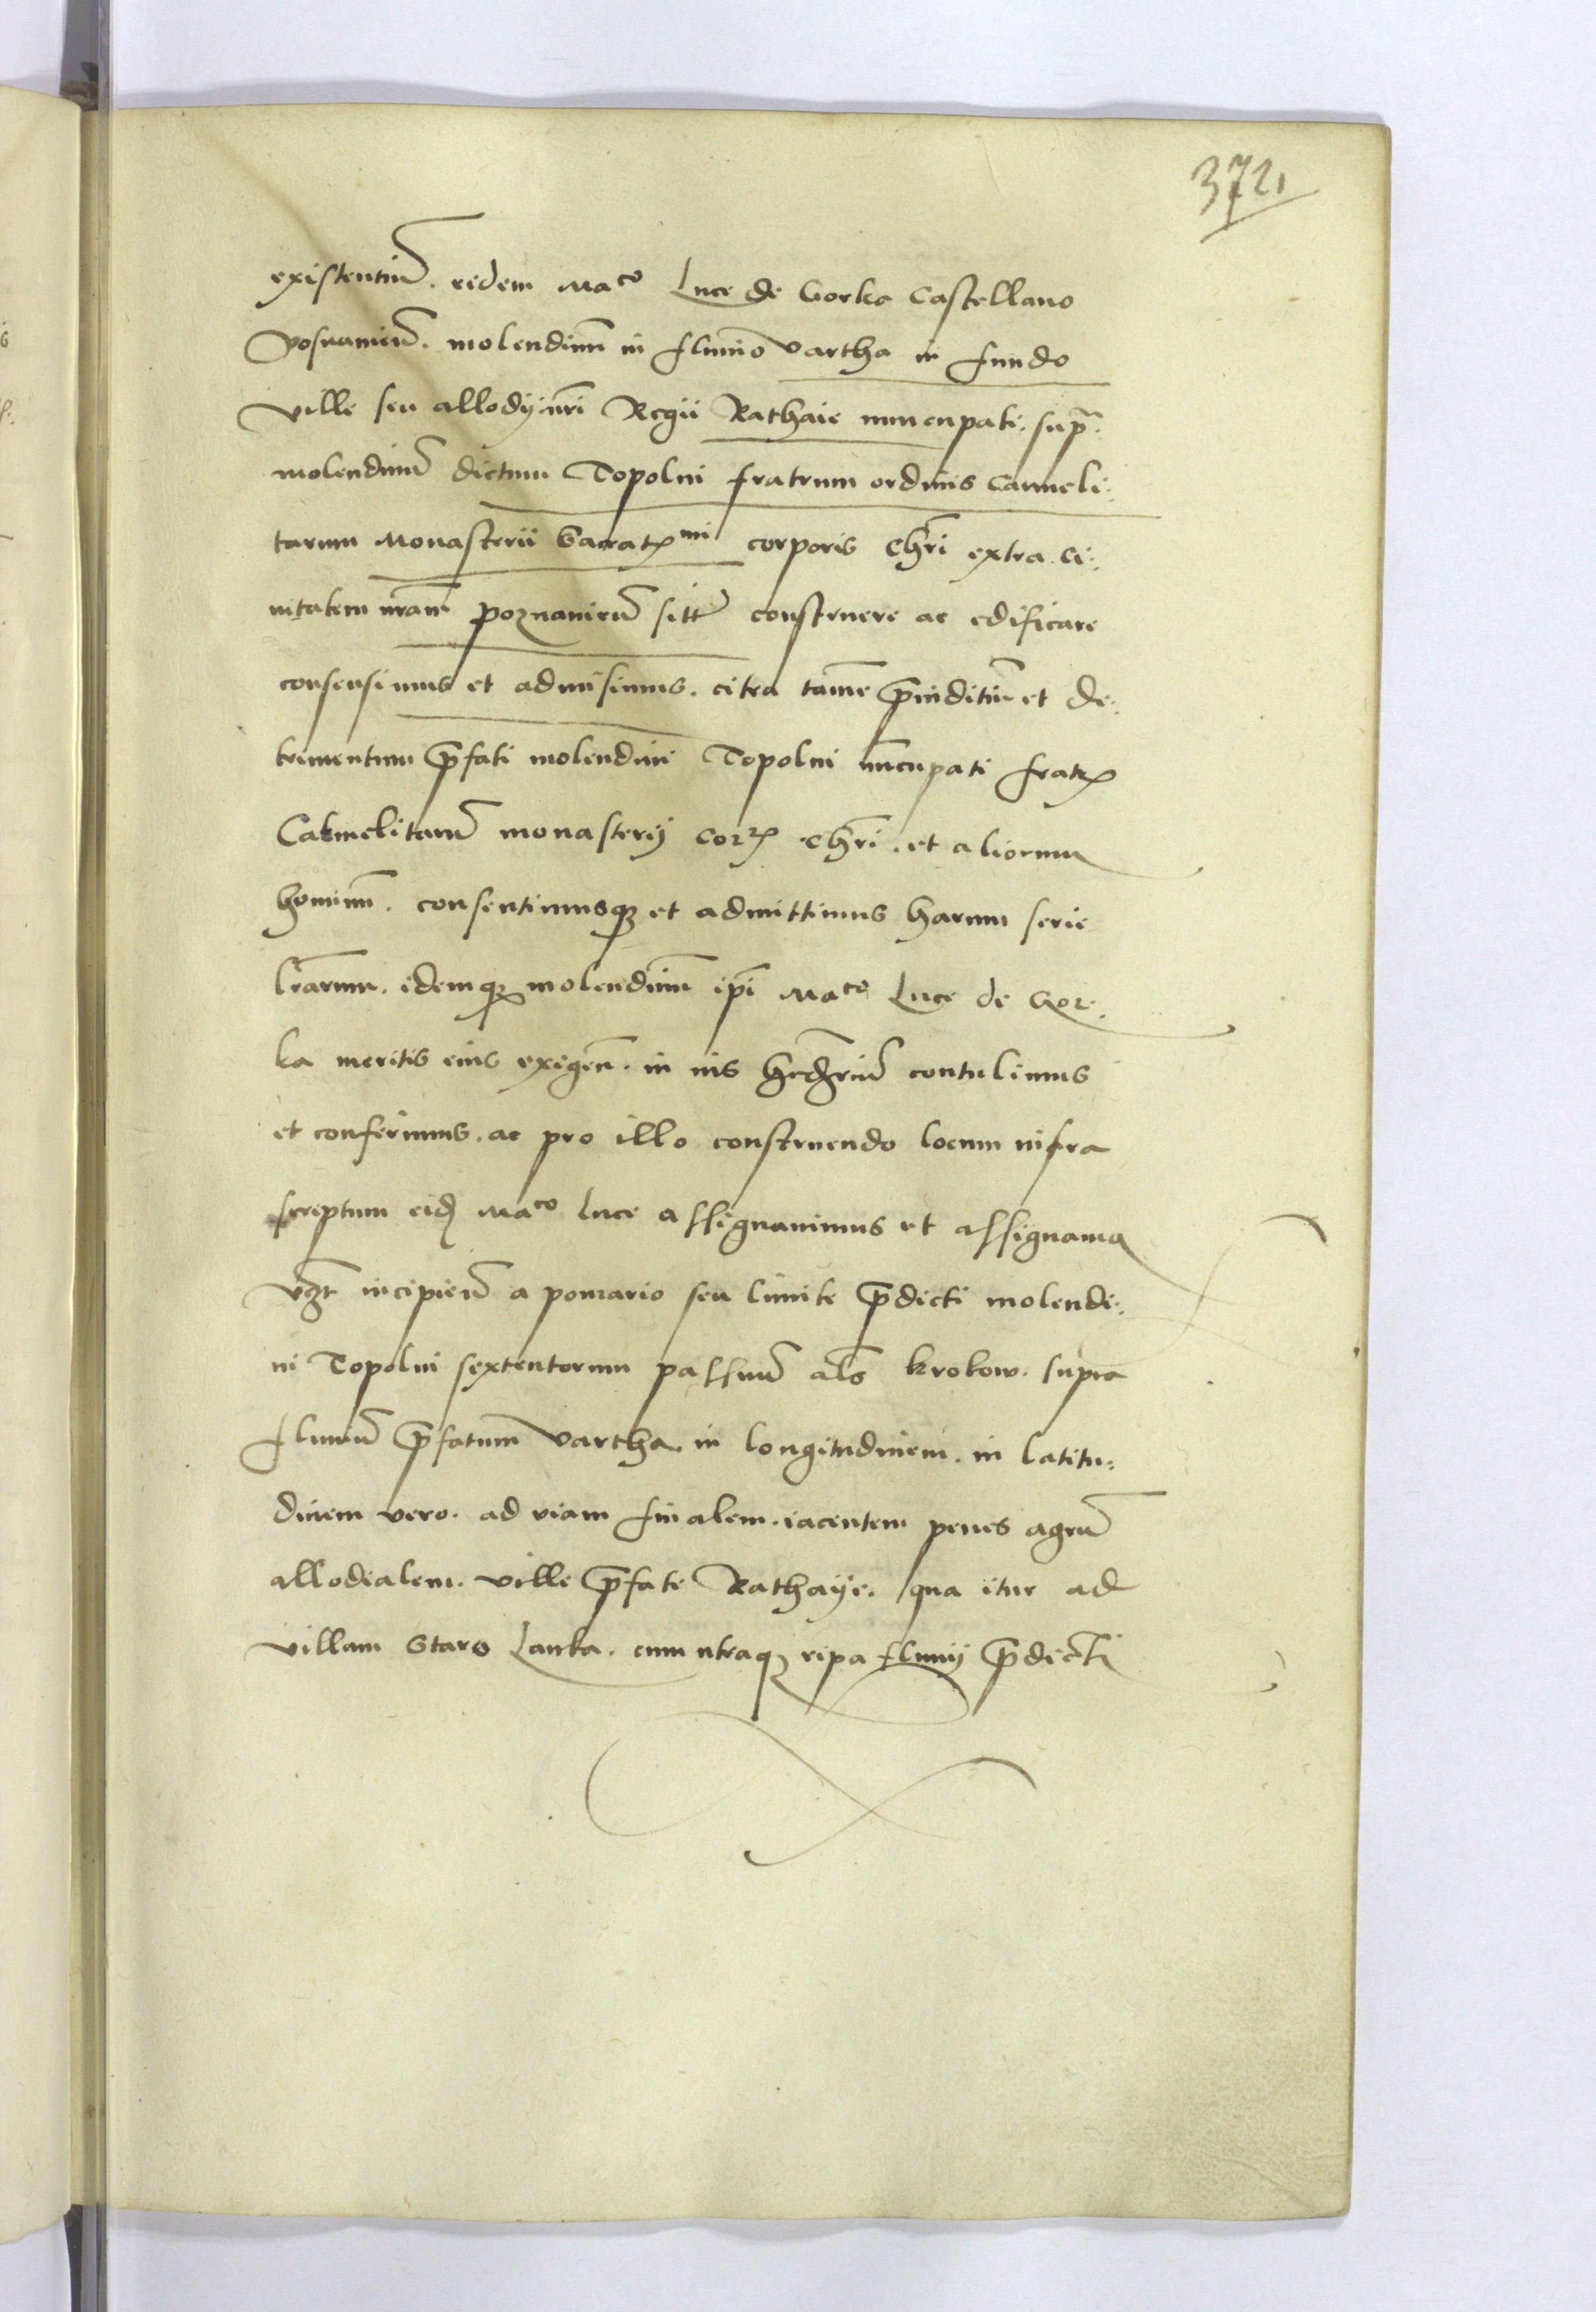 372
existentiũ. eidem Maco Luce de Gorka Castellano
Posnanieñ. molendinũ in fluuio Vartha in fundo
ville seu allodij nr̃i Regii Rathaie nuncupati. supra
molendinũ dictum Topolni fratrum ordinis Carmeli:
tarum Monasterii Sacratꝝmi corporis Chr̃i extra ci:
uitatem nr̃am Poznanieñ sitt̃ construere ac edificare
consensimus et admisimus. citra tamẽ p̃iuditiũ et de:
trimentum p̃fati molendini Topolni nũcupati fratꝝ
Carmelitarũ monasterij Corꝑ Chr̃i. et aliorum
hominũ. consentimusqꝫ et admittimus harum serie
lr̃arum. idemqꝫ molendinũ ip̃i Maco Luce de Gor:
ka meritis eius exigeñ. in ius hered̃riũ contulimus
et conferimus. ac pro illo construendo locum infra
screptum eidẽ Maco Luce assignauimus et assignamꝰ
vꝫt incipieñ a pomario seu limite p̃dicti molendi:
ni Topolni sextentorum passuũ al̃s krokow. supra
fluuiũ p̃fatum Vartha in longitudinem. in latitu:
dinem vero. ad viam finalem. iacentem penes agrũ
allodialem. ville p̃fate Rathaije. qua itur ad
villam Staro Lanka. cum utraqꝫ ripa fluuij p̃dicti